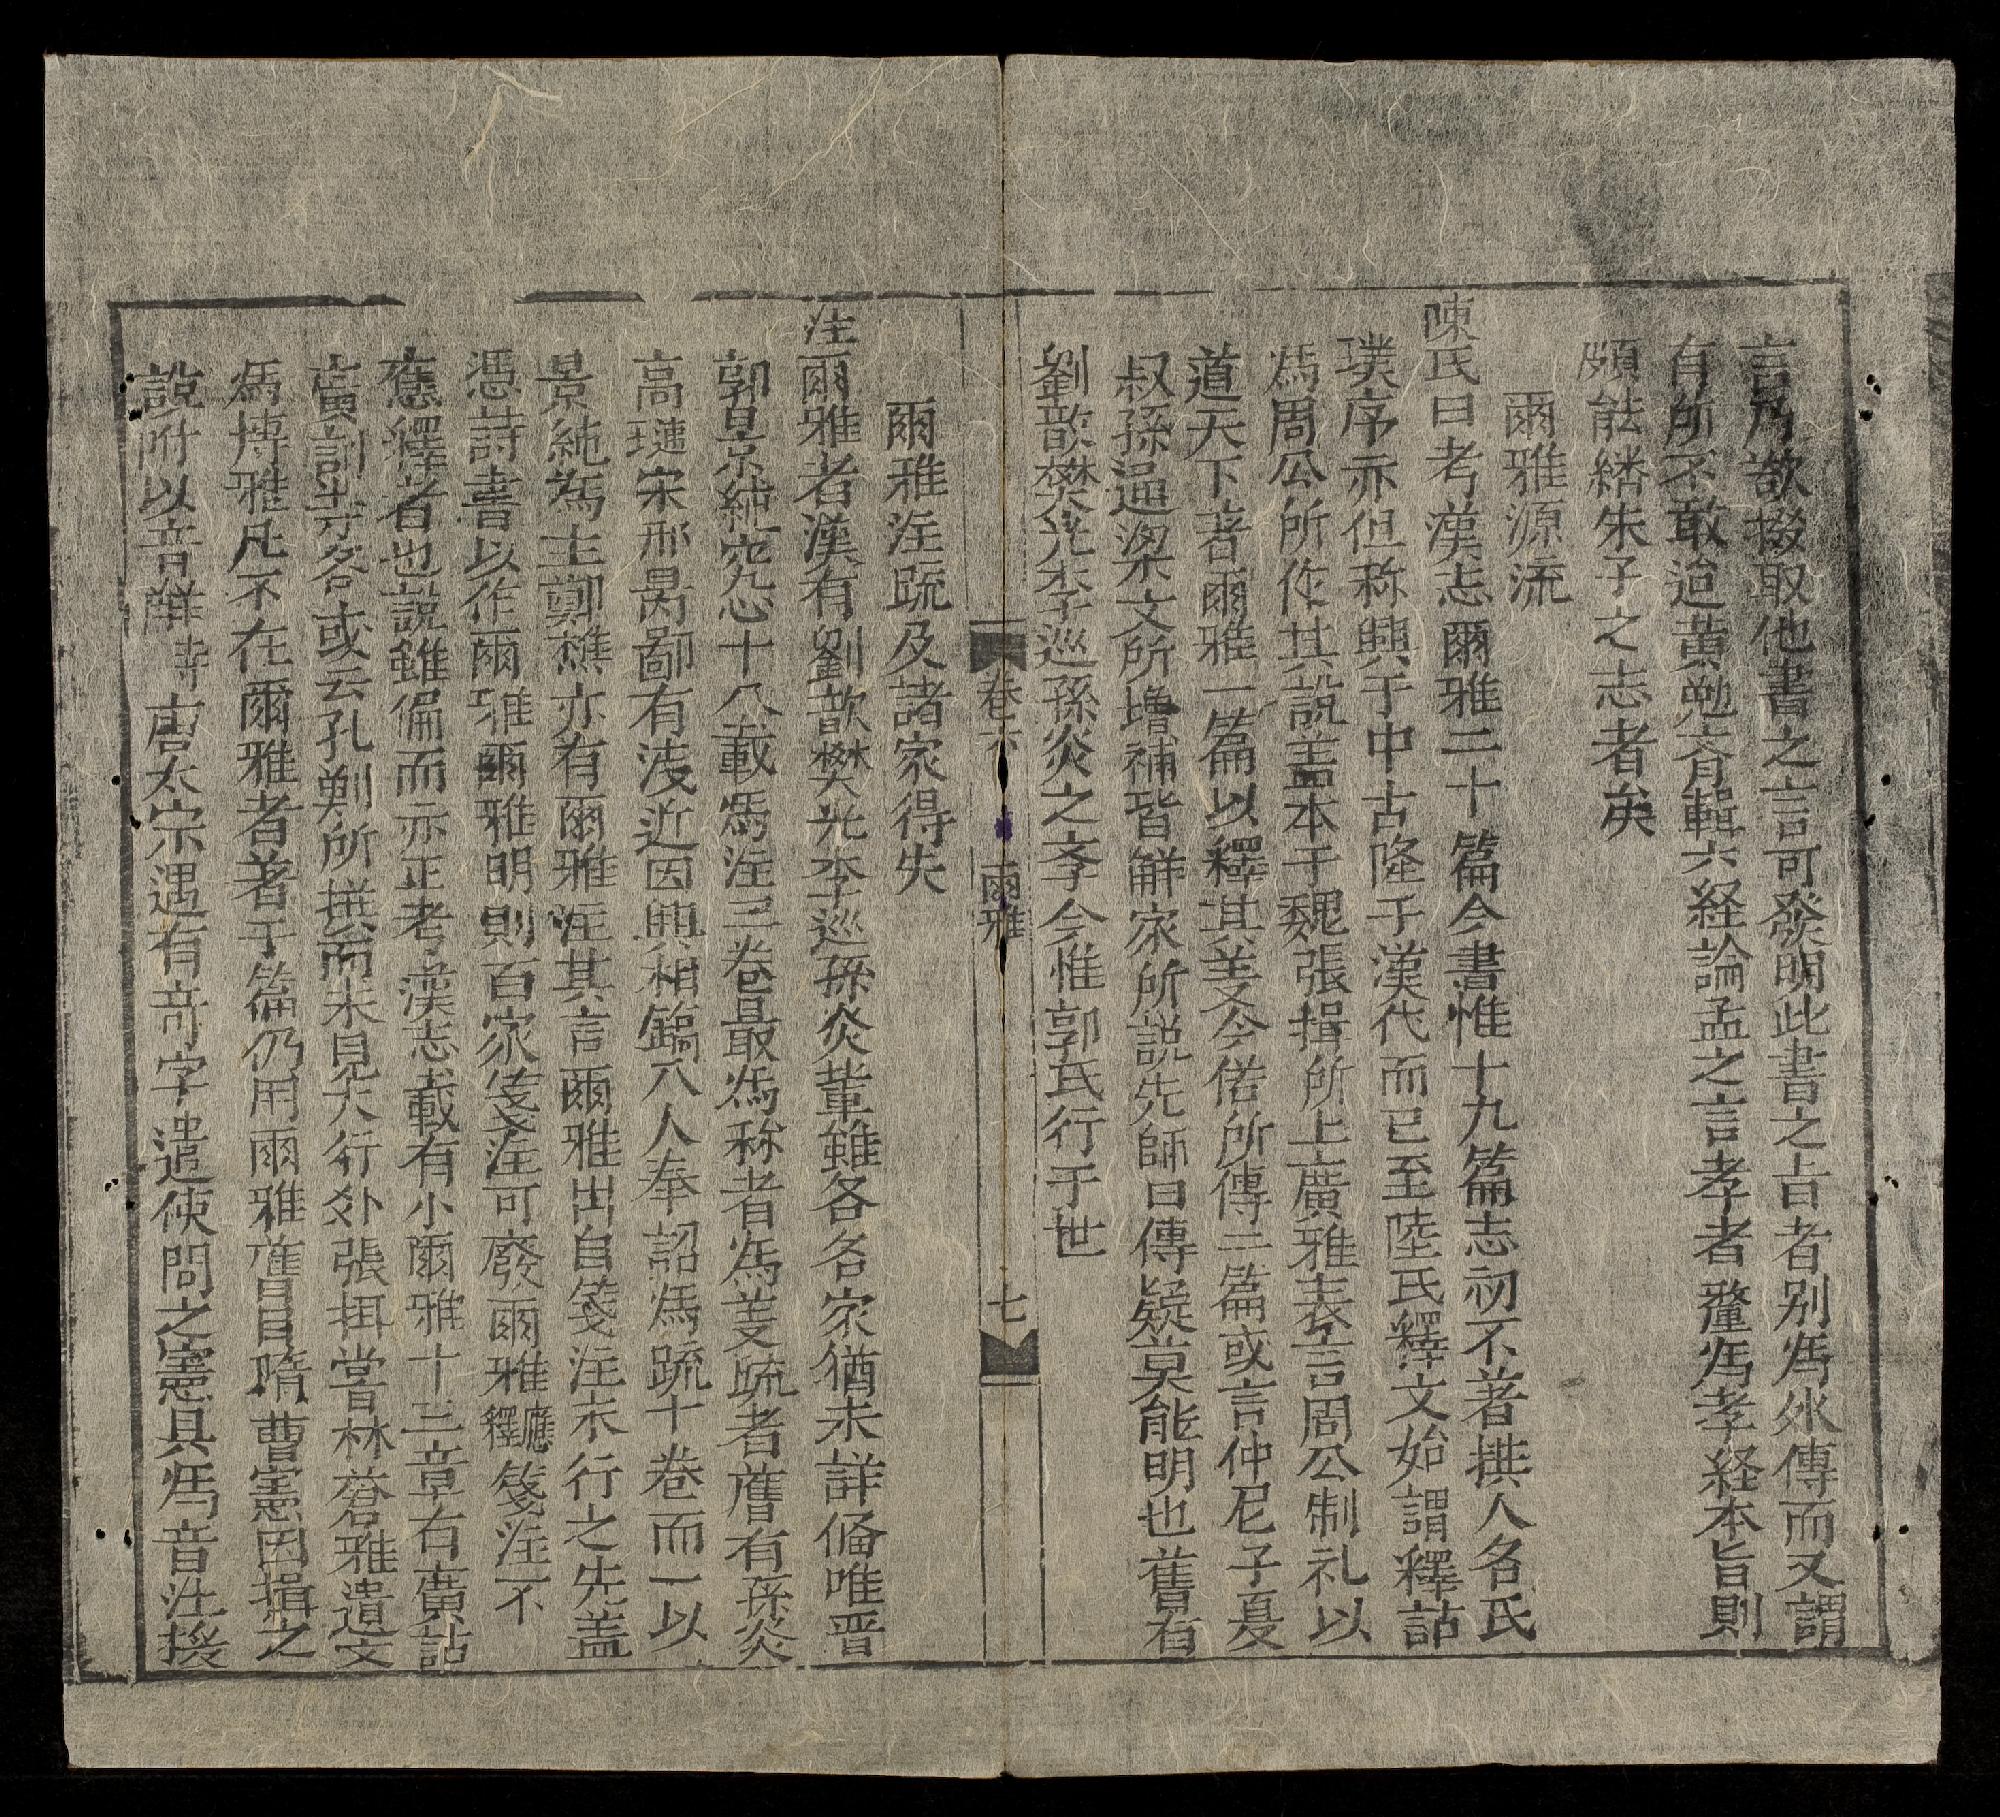 言乃欲掇取他書之言可發明此書之㫖者别爲外傳而又謂
有所不敢迨黄勉齋輯六経論孟之言孝者釐爲孝経本旨則
頗能繙朱子之志者矣
爾雅源流
陳氏曰考漢志爾雅二十篇今書惟十九篇志初不著撰人名氏
璞序亦但称興于中古隆于漢代而已至陸氏釋文始謂釋詁
爲周公所作其說盖本于魏張揖所上廣雅表言周公制礼以
道天下著爾雅一篇以釋其義今俗所傳二篇或言仲尼子夏
叔孫通梁文所增補皆解家所說先師曰傳疑莫能明也舊有
劉歆樊光李巡孫炎之李今惟郭氏行于世
卷六
爾雅
七
爾雅注疏及諸家得失
注爾雅者漢有劉歆樊光李巡孫炎輩雖各各家猶未詳俻唯晋
郭景純究心十八載爲注三卷最爲称者爲義疏者舊有孫炎
高璉宋邢昺鄙有淺近因興相篇八人奉詔爲疏十卷而一以
景純爲主鄭樵亦有爾雅注其言爾雅出自箋注未行之先盖
憑詩書以作爾雅爾雅明則百家箋注可廢爾雅應釋箋注不
應釋者也說雖偏而亦正考漢志載有小爾雅十三章有廣詁
廣訓等各或云孔鮒所撰而未見大行外張揖嘗林蒼雅遺文
爲博雅凡不在爾雅者著于篇仍用爾雅舊目隋曹憲因揖之
說附以音解時唐太宗遇有奇字遣使問之憲具爲音注援